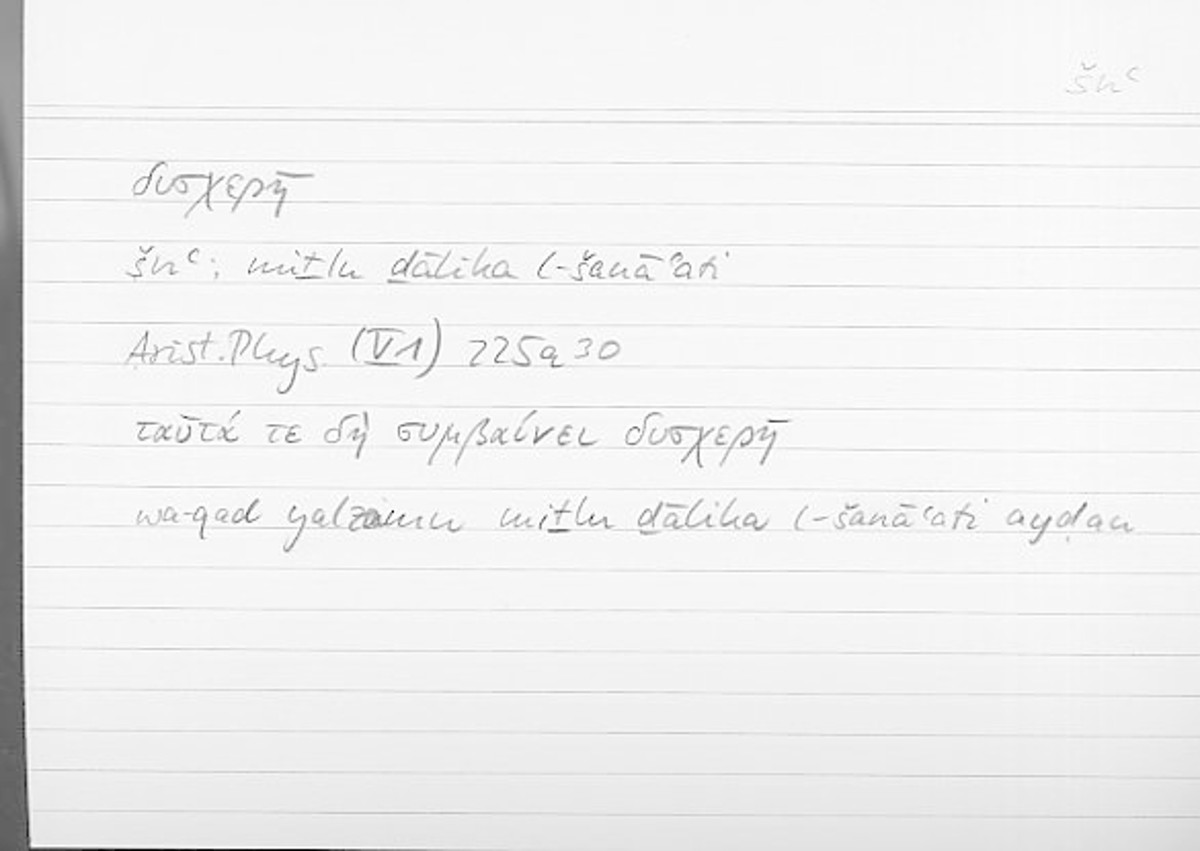 šnʿ
δυσχερῆ
šnʿ; miṯlu ḏālika l-šanāʿati
Arist. Phys. (V1) 225a30
ταῦτά τε δὴ συμβαίνει δυσχερῆ
wa-qad yalzamu miṯlu ḏālika l-šanāʿati ayḍan